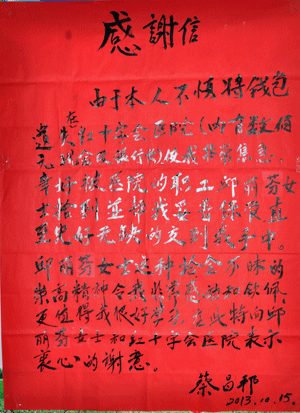 感謝信
由于本人不慎将钱包
遗失在红十字会医院(内有数佰
元现金及银行卡)使我非常着急。
幸好被医院的职工邱丽芬女
士捡到並帮我妥善保管直
至完好无缺的交到我手中。
邱丽芬女士这种拾金不昧的
崇高精神令我非常感动和钦佩,
更值得我很好学习。在此特向邱
丽芬女士和红十字会医院表示
衷心的谢意。
蔡昌邦
2013.10.15.